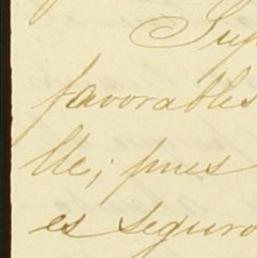 favorables
lle; pues
es seguro